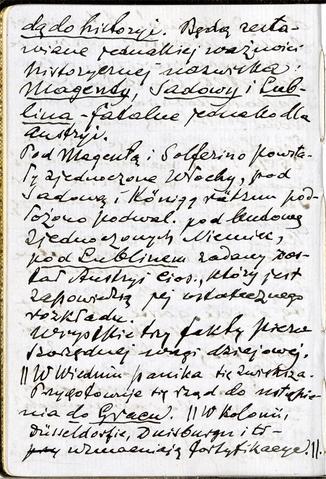 dą do historyi. Będą zesta-
wiane jednakiej ważności
historycznej nazwiska:
Magenty, Sadowy i Lub-
lina - fatalne jednako dla
Austryi.
Pod Magentą i Solferino powsta-
ły zjednoczone Włochy, pod
Sadową i Königgrätzem poł-
łożono podwal. pod budowę
zjednoczonych Niemiec,
pod Lublinem zadany zos-
tał Austryi cios, który jest
zapowiedzią jej ostatecznego
rozkładu.
Wszystkie trzy fakty pierw-
szorzędnej wagi dziejowej.
|| W Wiedniu panika się zwiększa.
Przygotowuje się rząd do ustąpie-
nia do Gracu. || W Kolonii,
Düsseldorfie, Duisburgu i t-
wzmacniają fortyfikacye. ||.